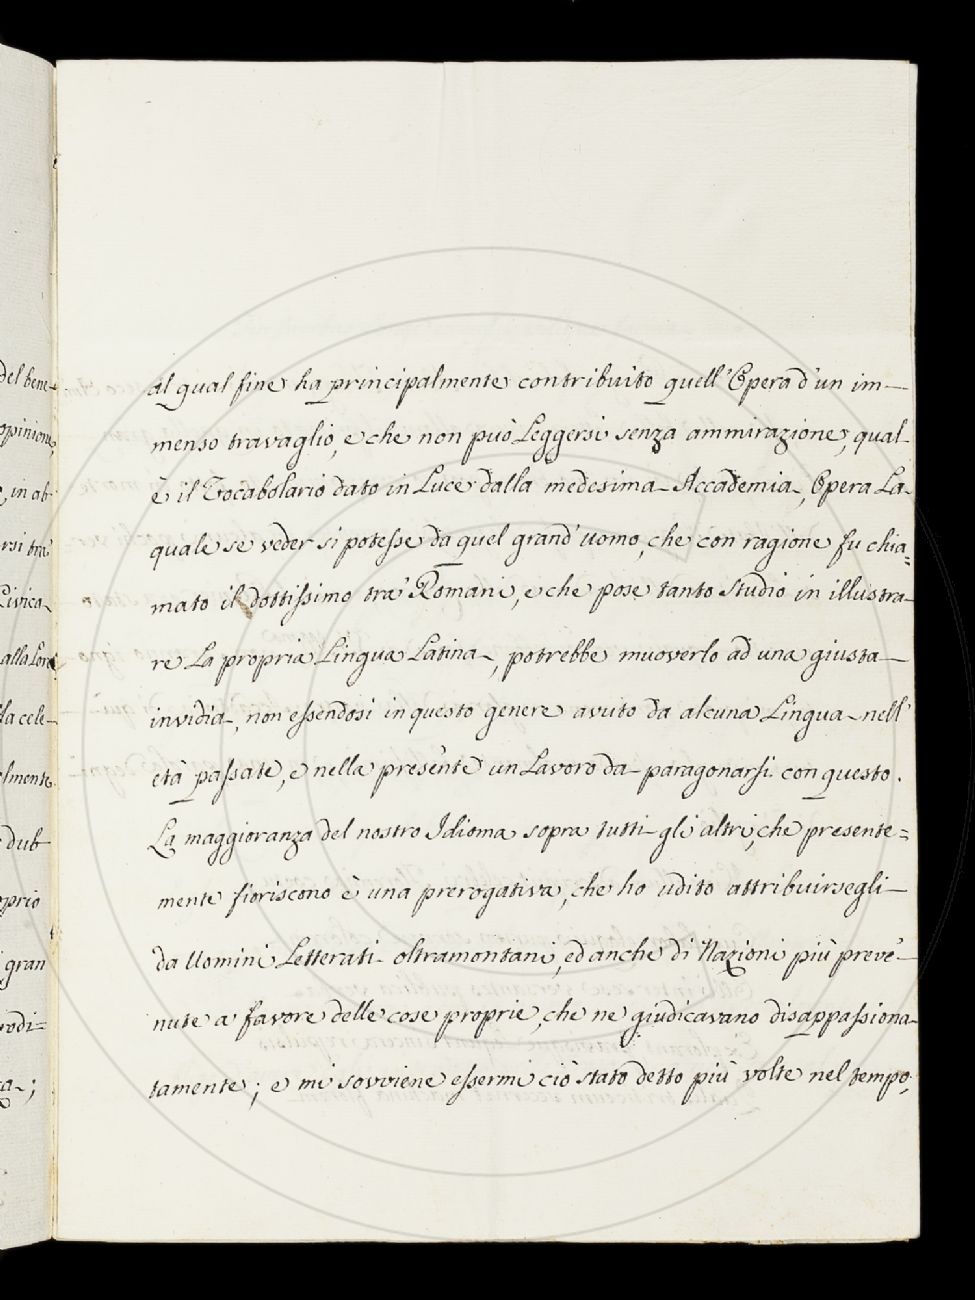 al qual fine ha principalmente contribuito quell'Opera d'un im-
menso travaglio, e che non può Leggersi senza ammirazione, qual
è il Vocabolario dato in Luce dalla medesima Accademia, Opera La
quale se veder si potesse da quel grand'uomo, che con ragione fu chia=
mato il dottissimo tra' Romani, e che pose tanto studio in illustra-
re La propria Lingua Latina, potrebbe muoverlo ad una giusta
invidia, non essendosi in questo genere avuto da alcuna Lingua nell'
età passate, e nella presente un Lavoro da paragonarsi con questo.
La maggioranza del nostro Idioma sopra tutti gli altri, che presente=
mente fioriscono è una prerogativa, che ho udito attribuirsegli
da Uomini Letterati oltramontani, ed anche di Nazioni più preve-
nute a favore delle cose proprie, che ne giudicavano disappassiona-
tamente; e mi sovviene essermi ciò stato detto più volte nel tempo,
del bene-
opinione,
, in ab-
rsi tra'
Civica
alla Lor
la cele-
lmente
dub-
oprio
gran
rodi=